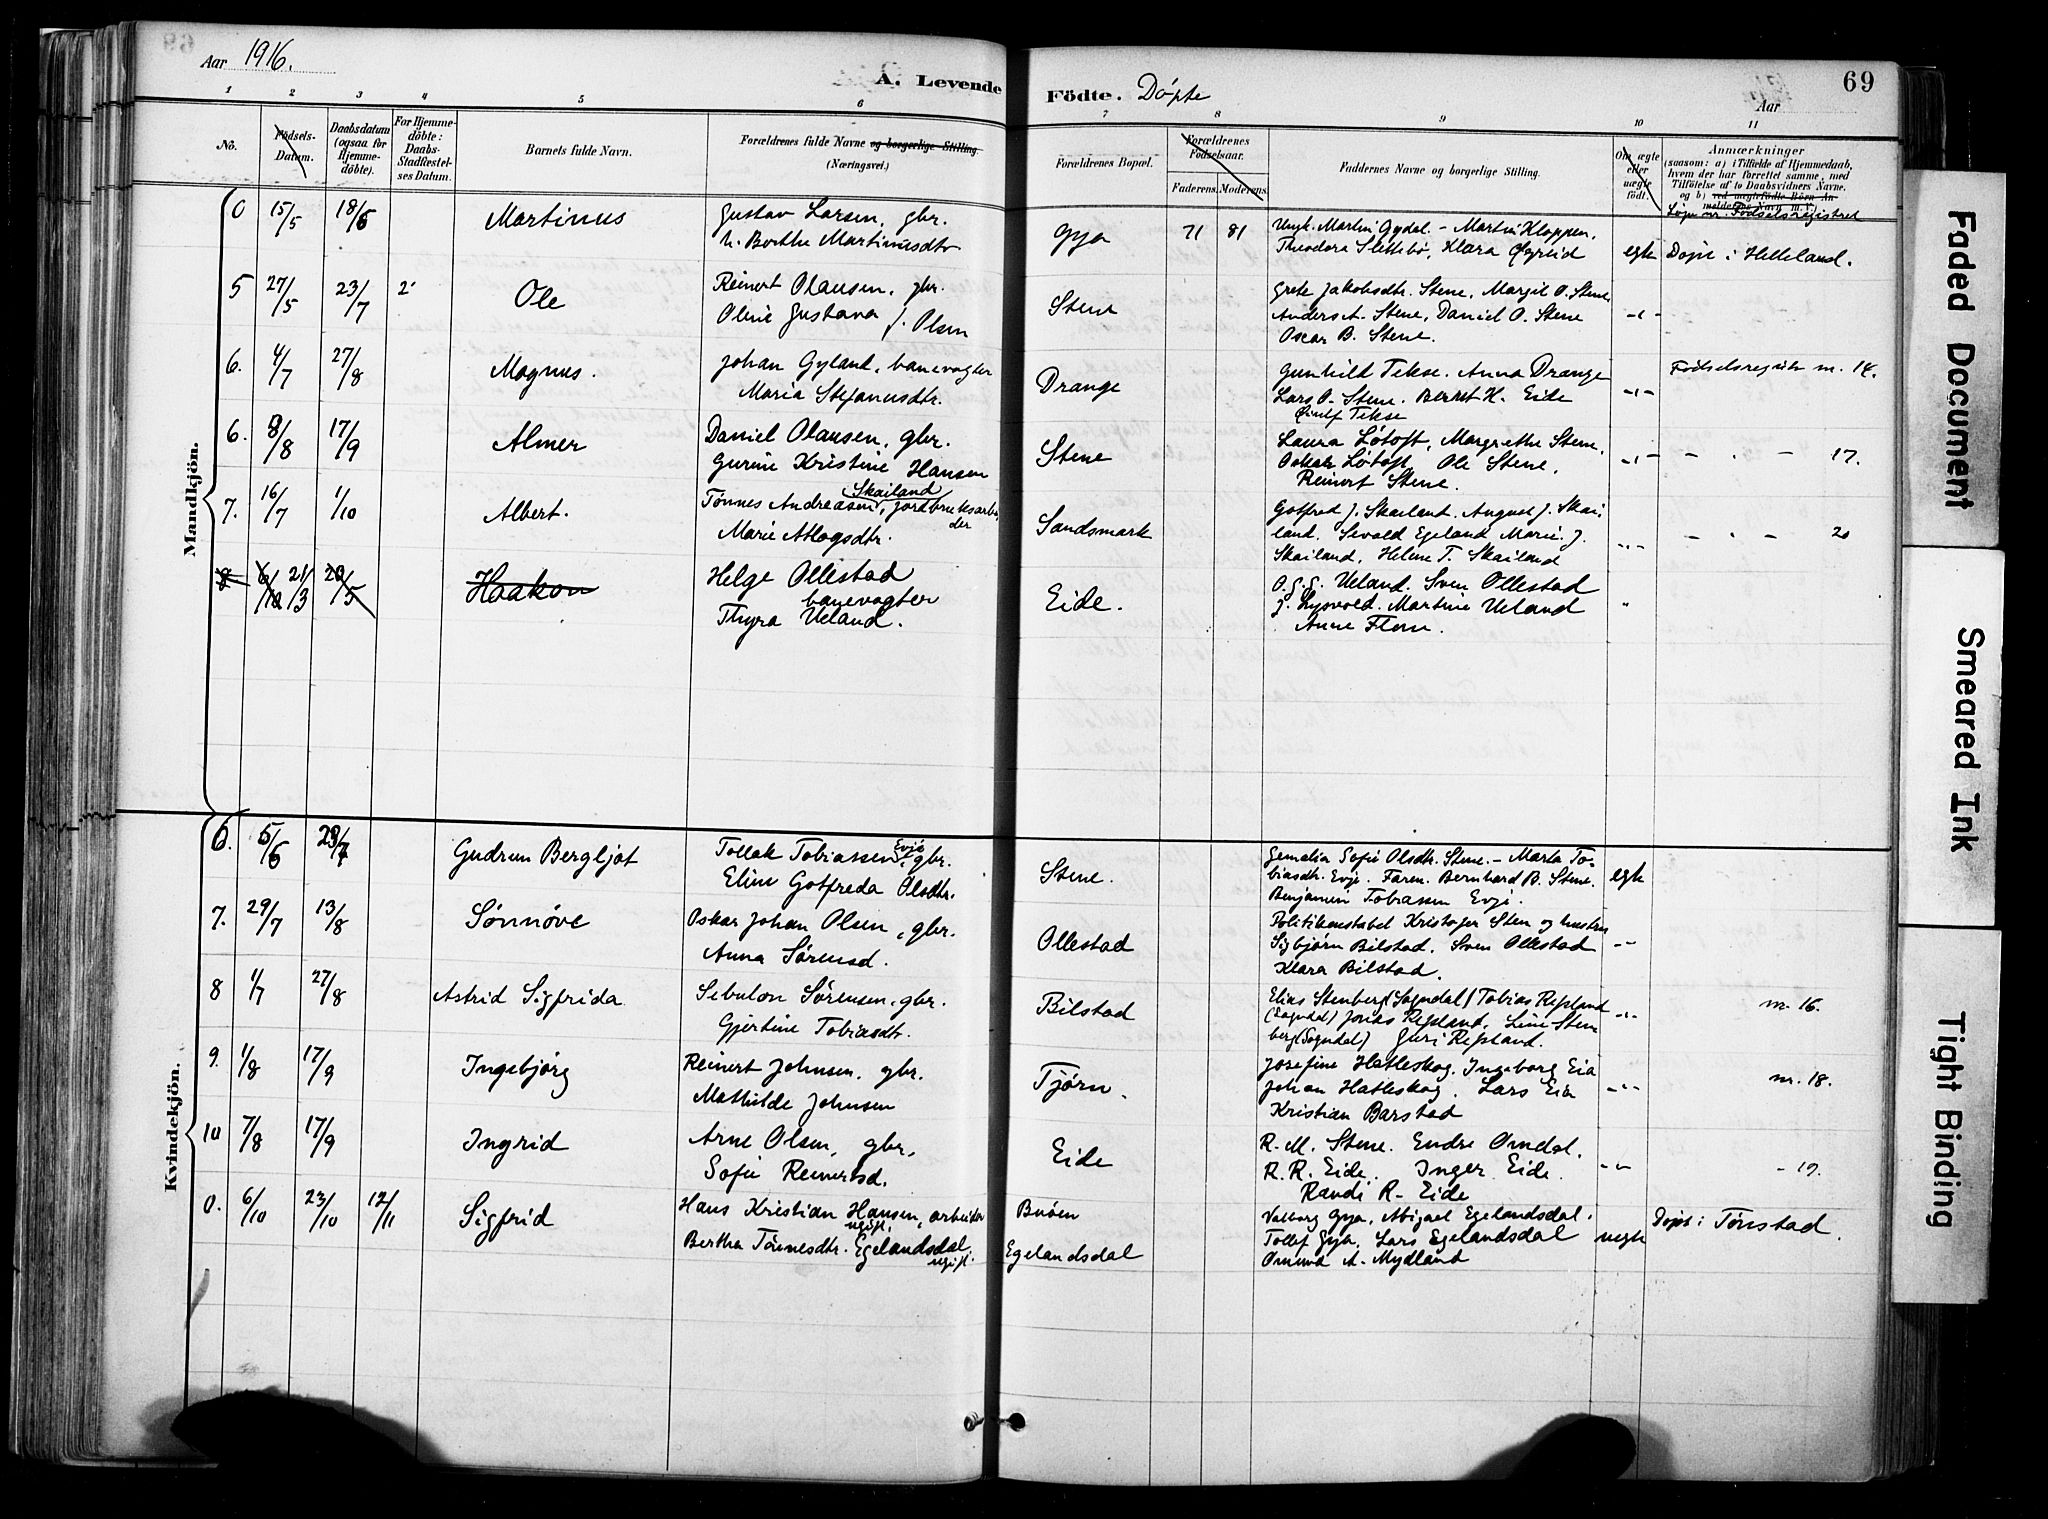 Aar 1916.
A. Levende
Födte. Døpte
Aar
69
1 2 3 4 5 6 7 8 9 10 11
No.
Födsels-
Datum.
Daabsdatum
(ogsaa for
Hjemme-
döbte).
For Hjemme-
döbte:
Daabs-
Stadfæstel-
ses Datum.
Barnets fulde Navn.
Forældrenes fulde Navne og borgerlige Stilling
(Næringsvei.)
Forældrenes Bopæl.
Forældrenes
Födselsaar.
Faderens. Moderens.
Faddernes Navne og borgerlige Stilling.
Om ægte
eller
uægte
födt.
Anmærkninger
(saasom: a) i Tilfælde af Hjemmedaab,
hvem der har forrettet samme, med
Tilföielse af to Daabsvidners Navne,
og b) ved uægtefödte Börn An-
melderens Navn m. V.)
Løpe nr. Fødselsregistret
Mandkjön.
0 15/5 18/6 Martinus Gustav Larsen, gbr. Gya 71 81 Ungk. Martin Gydal. - Martin Kloppen,
h. Berthe Martinusdtr Theodora Slettebø, Klara Øgreid egte Døpt i Helleland.
5 27/5 23/7 Ole Reinert Olausen, gbr. Stene Grete Jakobsdtr. Stene, Margit O. Stene,
Oline Gustava f. Olsen Anders A. Stene, Daniel O. Stene
Oscar B. Stene.
6. 4/7 27/8 Magnus. Johan Gyland, banevogter Drange Gunhild Tekse. Anna Drange Fødselsregistr nr. 14.
Maria Stefanusdtr. Lars O. Stene. Berent H. Eide
Tekse
6. 8/8 17/9 Almer Daniel Olausen, gbr. Stene Laura Løtoft, Margrethe Stene, 17.
Gurine Kristine Hansen Oskar Løtoft, Ole Stene,
Reinert Stene.
7. 16/7 1/10 Albert. Tønnes Andreasen Skailand, jordbruksarbei-
der Sandsmark Gotfred J. Skailand. August J. Skai-
Marie Atlagsdtr. land. Sevald Egeland Marie J. 20
Skailand, Helene T. Skailand
8 21/3 Haakon Helge Ollestad Eide. O. G. G. Ueland. Sven Ollestad
banevogter J. Lysvold. Martine Ueland
Thyra Ueland. Anne Flem.
Kvindekjön.
6. 5/6 23/7 Gudrun Bergljot Tollak Tobiassen Evje, gbr. Stene. Gemalia Sofie Olsdtr. Stene. - Marta To-
Eline Gotfreda Olsdtr. biasdtr. Evje. Faren. Bernhard B. Stene. egte
Benjamin Tobiassen Evje.
7. 29/7 13/8 Sønnøve Oskar Johan Olsen, gbr. Ollestad Politikonstabel Kristofer Sten og hustru
Anna Sørensd. Sigbjørn Bilstad. Sven Ollestad
Klara Bilstad.
8 1/7 27/8 Astrid Sigfrida Sebulon Sørensen, gbr. Bilstad Elias Stenberg (Sogndal) Tobias Repland nr. 16.
Gjertine Tobiasdtr. (Sogndal) Jonas Repland, Line Sten-
berg (Sogndal) Guri Repland.
9. 1/8 17/9 Ingebjørg Reinert Johnsen, gbr. Tjørn. Josefine Hatleskog, Ingeborg Eia nr. 18.
Mathilde Johnsen Johan Hatleskog. Lars Eia
Kristian Barstad
10 7/8 17/9 Ingrid Arne Olsen, gbr, Eide R. M. Stene. Endre Omdal. - 19.
Sofie Reinertsd. R. R. Eide. Inger Eide.
Randi R. Eide
0. 6/10 23/10 12/11 Sigfrid Hans Kristian Hansen, arbeider Buöen Valborg Gya, Abigael Egelandsdal. Døpt i Tonstad.
ugift. Tollef Gya, Lars Egelandsdal uegte
Bertha Tönnesdtr. Egelandsdal. Egelandsdal Omund A. Mydland
ugift.
Faded Document
Smeared Ink
Tight Binding